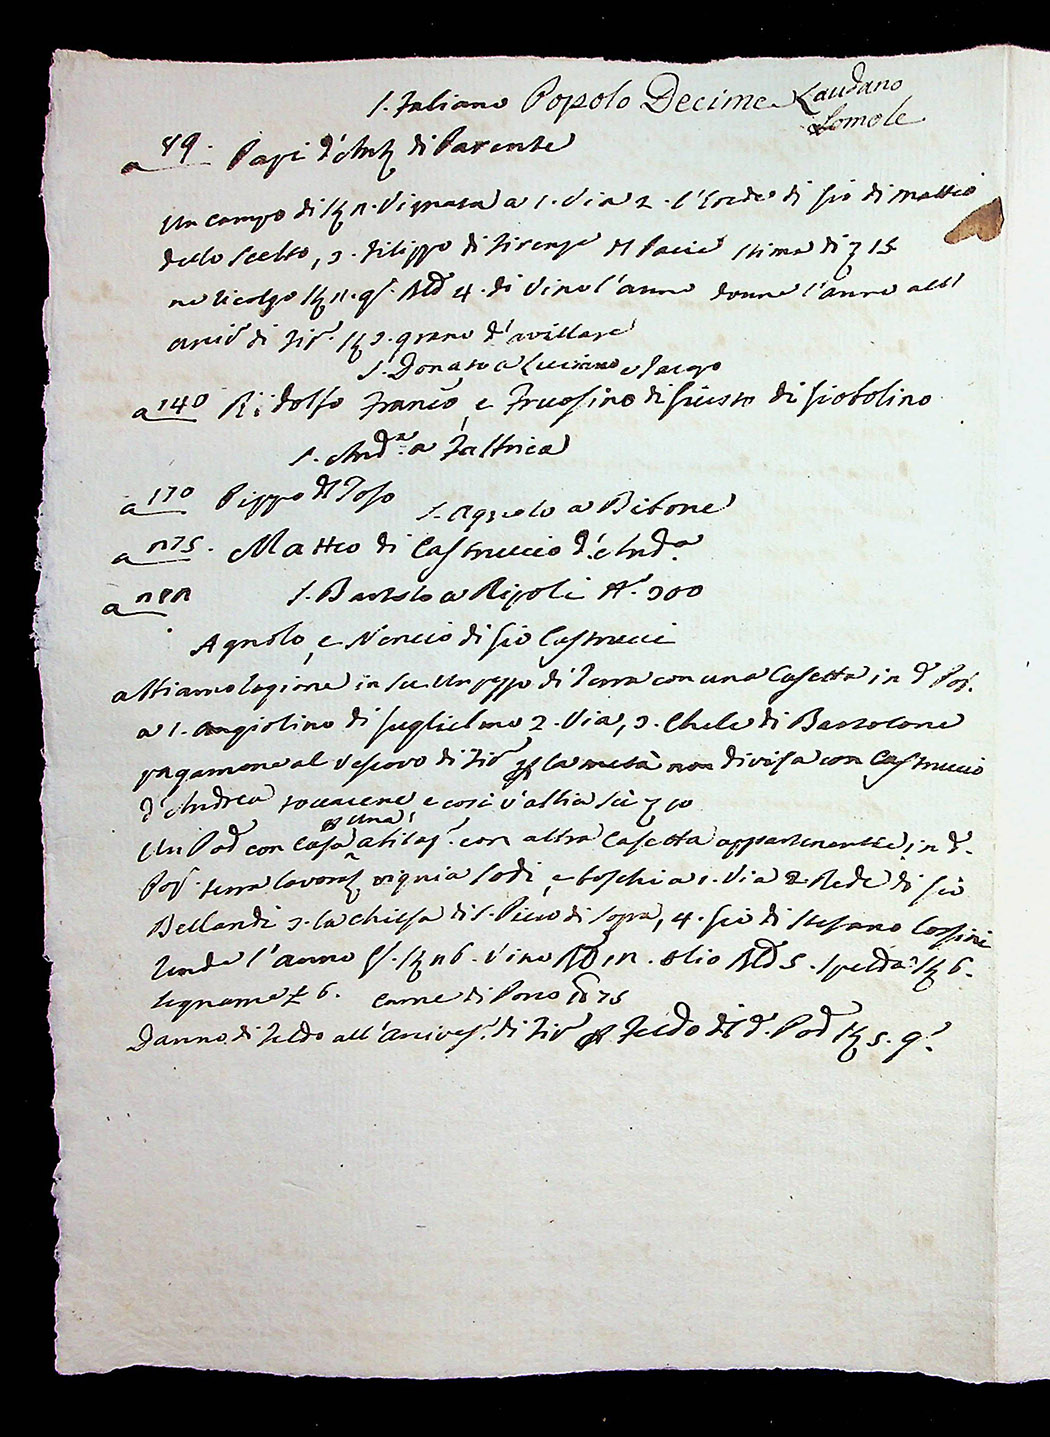 S. Fabiano Popolo Decime Laudano
Lomole
a 89. Papi d'Antº di Parente
Un campo di Vignata a 1. Via 2. l'Erede di Gio di Matteo
dello Scelto, 3. Filippo di Firenze Stima di 15
ne ricolgo di Vino l'anno donne l'anno all'
arciº di Fioº 3. grano d'avillare
S. Donato a Luciano e Jacopo
a 140 Ridolfo Francº, e Fruosino di Giusto di Giobolino
S. Andª. a Faltrica
a 170 Pippo del Toso
S. Agnolo a Bibone
a 175. Matteo di Castruccio d'Andª
a 181 S. Bartolo a Ripoli Aº. 300
Agnolo, e Nencio di Gio Castrucci
abbiamo ragione in su Un pezzo di Terra con una Casetta in dº Poº.
a 1. Angiolino di Guglielmo 2. Via, 3. Chele di Bartolone
pagamone al Vescovo di Fioº la metà non divisa con Castruccio
d'Andrea toccacene e così v'abbia sù 10
p una
Un Podº con Casa abitaº. con altra Casetta appartenente, in dº.
Poº. terra lavorº vignia sodi, e boschi a 1. Via 2 Rede di Gio
Bellandi 3. la chiesa di S. Piero di sopra, 4. Gio di Stefano Corsini
Rende l'anno Gº. 16. Vino olio 5. speldaº 6.
legname £ 6. Carne di Porco 75
Danno di feldo all'Arcivesº. di Fioº p feldo del dº. Podº 5. gº.